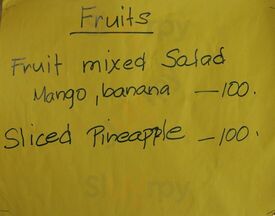 Fruits
Fruit mixed Salad
Mango, banana — 100.
Sliced Pineapple — 100.